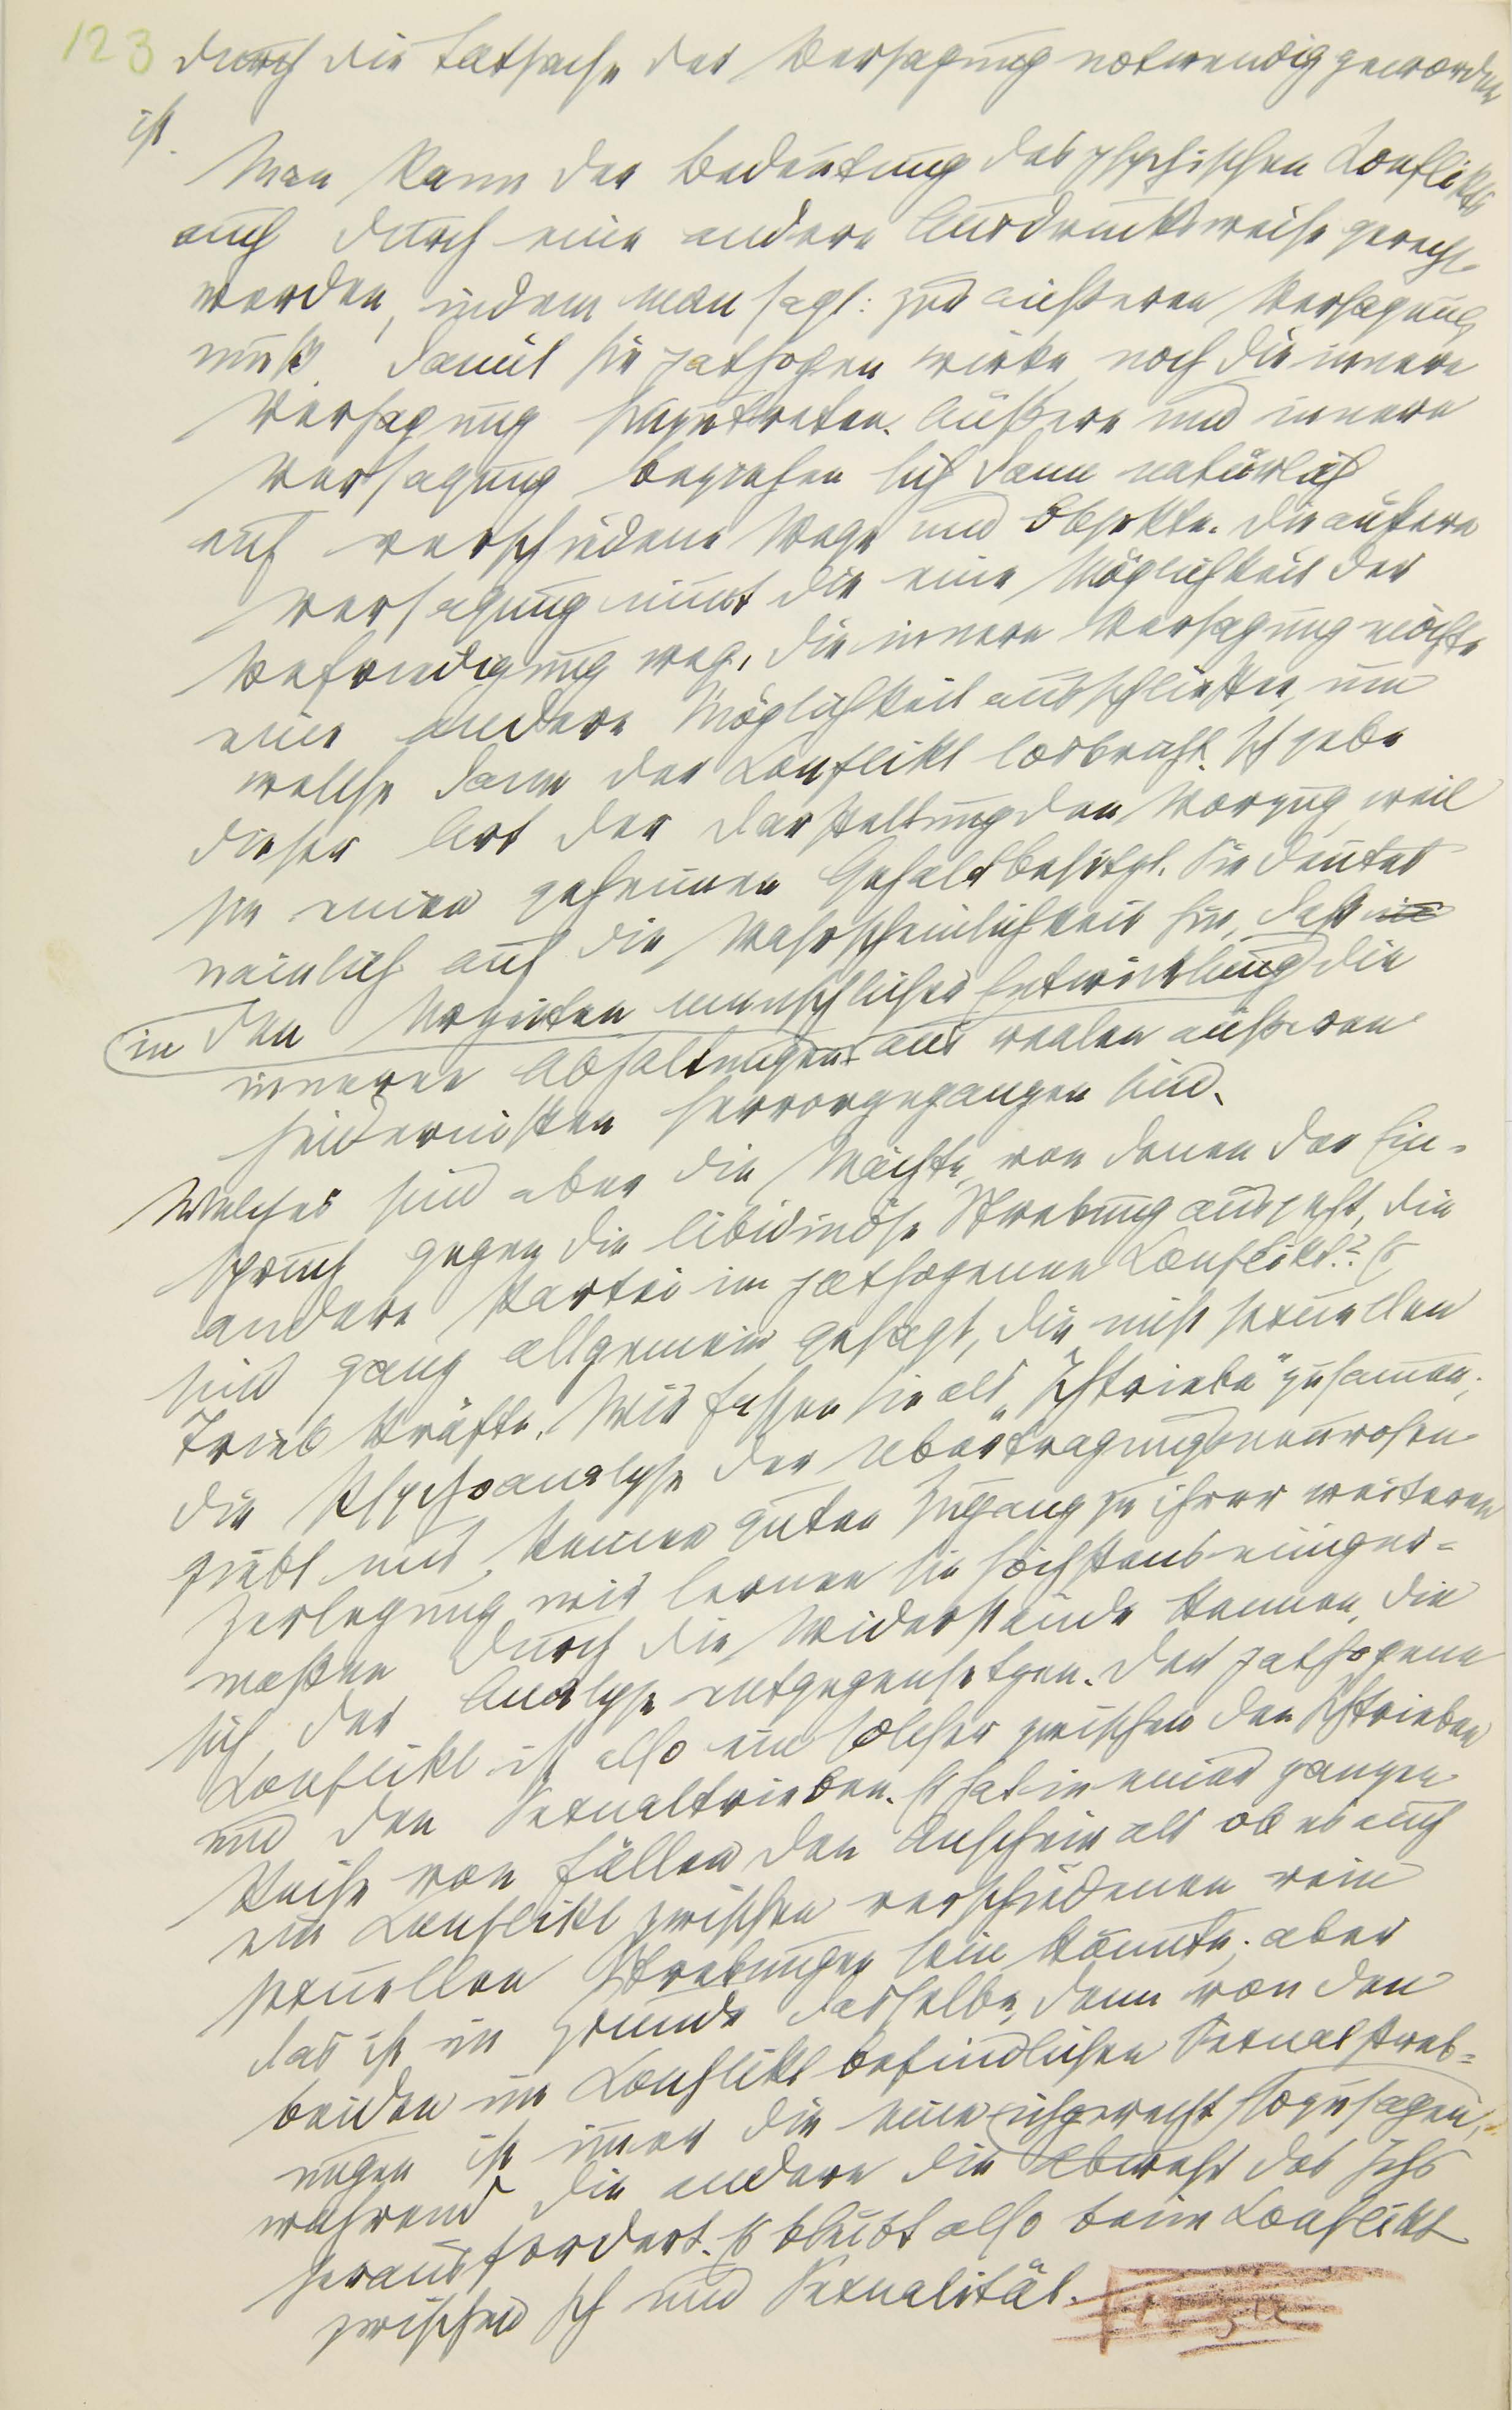 123 durch die Tatsache der Versagung notwendig geworden
ist.
Man kann der Bedeutung des psychischen Konflikts
auch durch eine andere Ausdrucksweise gerecht
werden, indem man sagt: zur äußeren Versagung
muß, damit sie pathogen wirke, noch die innere
Versagung hinzutreten. Äußere und innere
Versagung beziehen sich dann natürlich
auf verschiedene Wege und Objekte. Die äußere
Versagung nimt die eine Möglichkeit der
Befriedigung weg, die innere Versagung möchte
eine andere Möglichkeit ausschließen, um
welche dann der Konflikt losbricht. Ich gebe
dieser Art der Darstellung den Vorzug, weil
sie einen geheimen Gehalt besitzt. Sie deutet
nämlich auf die Wahrscheinlichkeit hin, daß
in den Urzeiten menschlicher Entwicklung die
inneren Abhaltungen aus realen äußeren
Hindernissen hervorgegangen sind.
Welches sind aber die Mächte, von denen der Ein-
spruch gegen die libidinöse Strebung ausgeht, die
andere Partei im pathogenen Konflikt? Es
sind ganz allgemein gesagt, die nicht sexuellen
Triebkräfte. Wir fassen sie als „Ichtriebe" zusamen;
die Psychoanalyse der Übertragungsneurosen
giebt uns keinen guten Zugang zu ihrer weiteren
Zerlegung, wir lernen sie höchstens einiger-
maßen durch die Widerstände kennen, die
sich der Analyse entgegensetzen. Der pathogene
Konflikt ist also ein solcher zwischen den Ichtrieben
und den Sexualtrieben. Es hat in einer ganzen
Reihe von Fällen den Anschein als ob es auch
ein Konflikt zwischen verschiedenen rein
sexuellen Strebungen sein könnte; aber
das ist im Grunde dasselbe, denn von den
beiden im Konflikt befindlichen Sexualstreb-
ungen ist imer die eine ichgerecht sozusagen,
während die andere die Abwehr des Ichs
herausfordert. Es bleibt also beim Konflikt
zwischen Ich und Sexualität.